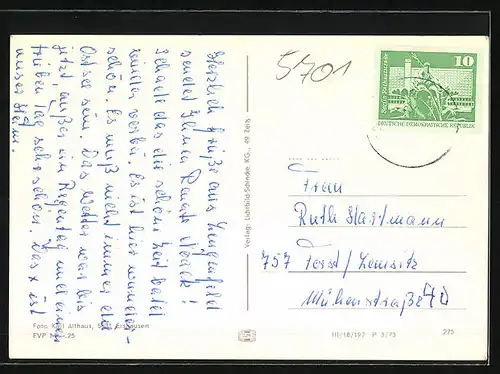 5701
10
DEUTSCHE DEMOKRATISCHE REPUBLIK
Herzlich Grüße aus Lengenfeld
sendet Ihnen Renate
Schade das die schöne Zeit bald
wieder vorbei. Es ist hier wunder-
schön. Es muß nicht immer die
Ostsee sein. Das Wetter war bis
jetzt, außer ein Regentag und einen
trüben Tag sehr schön. Das x ist
unser Heim.
Foto Karl Althaus, Ershausen
FVP
Verlag: Lichtbild-Schincke KG., 49 Zeitz
Frau
Ruth Hartmann
757 Forst/Lausitz
Mühenstraße 40
III/18/197 P 3/73
275